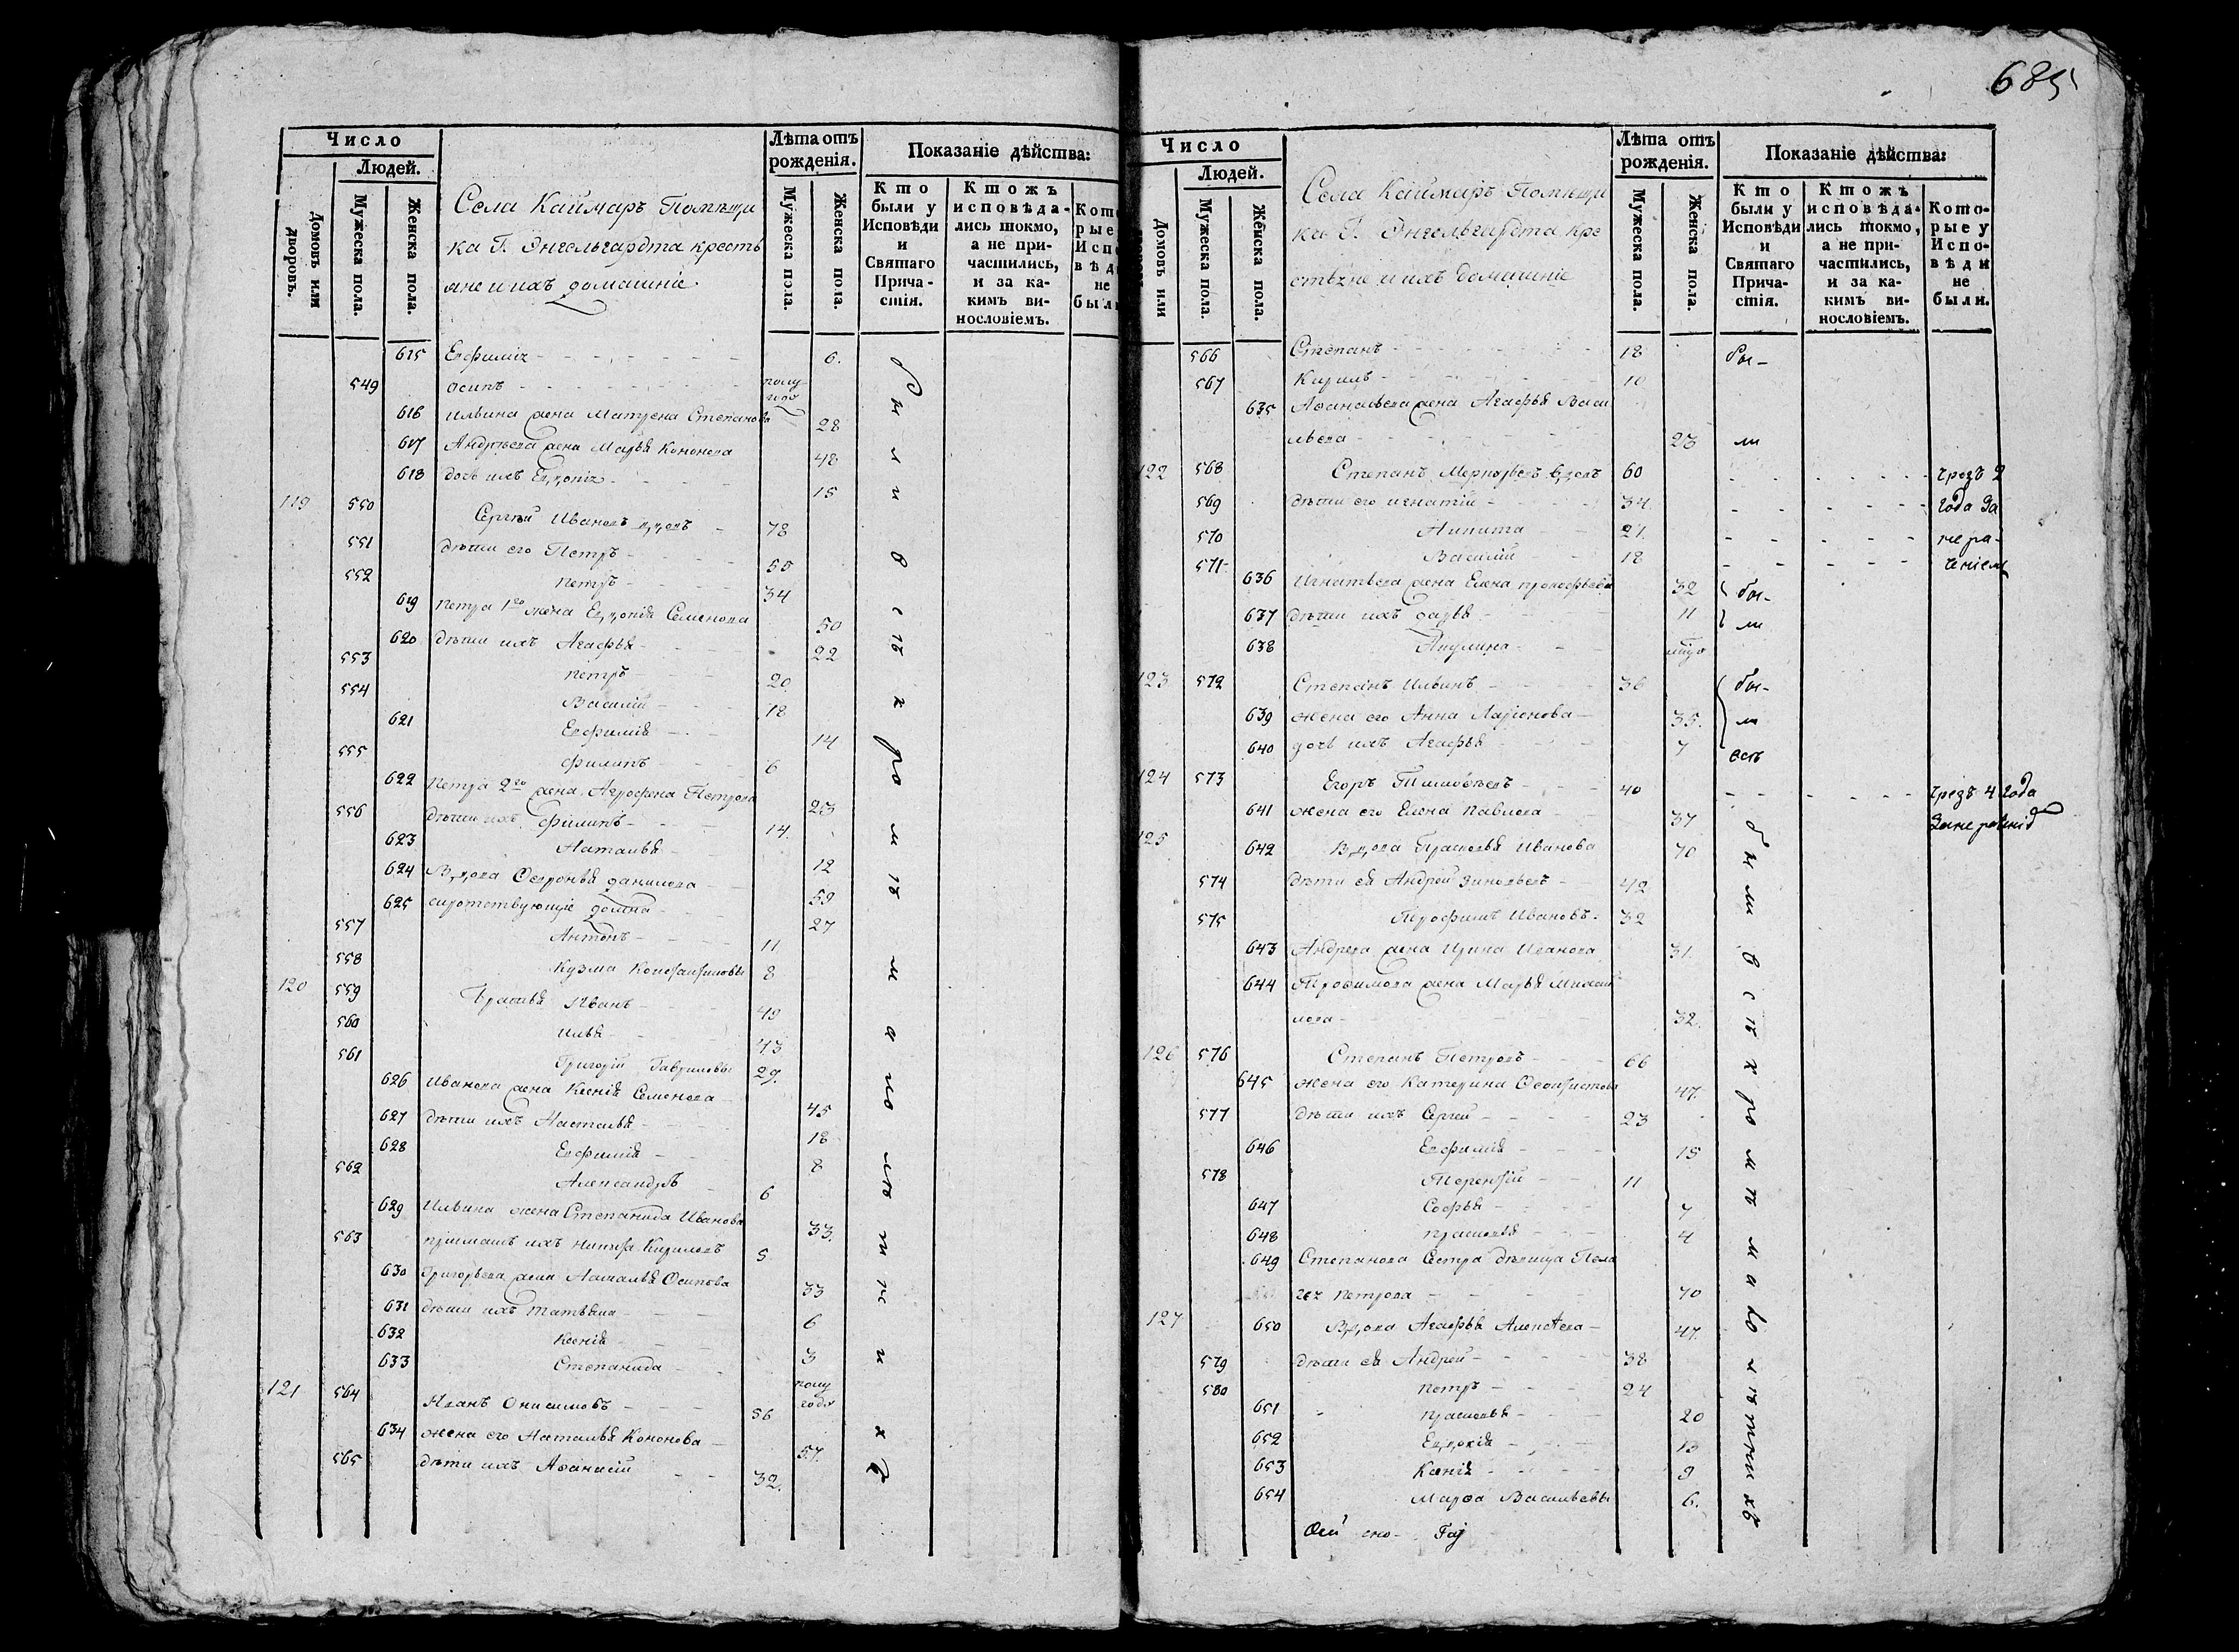 685
Число
Людей.
Домовъ или дворовъ.
Мужеска пола.
Женска пола.
Села Каймаръ Помѣщи
ка Г. Энгельгардта кресть
яне и ихъ домашніе
Лѣта отъ рожденія.
Мужеска пола.
Женска пола.
Показаніе дѣйства:
Кто были у Исповѣди и Святаго Прича-стія.
Ктожъ исповѣда-лись токмо, а не при-частились, и за ка-кимъ ви-нословіемъ.
615 Евфимія 6.
549 Осипъ полу года
616 Ильина жена Матрена Степанова 28
617 Андреева жена Марья Кононова 48
618 дочь ихъ Евдокія 15
119 550 Сергѣй Ивановъ вдовъ 78
551 дѣти его Петръ 55
552 Петръ 34
619 Петра 1го жена Евдокія Семенова 50
620 дѣти ихъ Агафья 22
553 Петръ 20
554 Василій 18
621 Евфимія 14
555 Филипъ 6
622 Петра 2го жена Агрофена Петрова 23
556 дѣти ихъ Филипъ 14.
623 Наталья 12
624 Вдова Февронья Данилова 59
625 сиротствующіе Домна 27
557 Антонъ 11
558 Кузма Константиновы 8
120 559 Братья Иванъ 49
560 Илья 43
561 Григорій Гавриловы 29.
626 Иванова жена Ксенія Семенова 45
627 дѣти ихъ Настасья 18
628 Евфимія 8
562 Александръ 6
629 Ильина жена Степанида Иванова 33.
563 пріимашъ ихъ Никита Кириловъ 5
630 Григорьева жена Наталья Осипова 33
631 дѣти ихъ Татьяна 6
632 Ксенія 3
633 Степанида полу года
121 564 Иванъ Онисимовъ 56
634 жена его Наталья Кононова 57.
565 дѣти ихъ Афанасій 32.
были всѣ кромѣ малолѣтнихъ
Число
Людей.
Домовъ или
Мужеска пола.
Женска пола.
Села Каймаръ Помѣщи
ка Г. Энгельгардта кре
стьяне и ихъ домашніе
Лѣта отъ рожденія.
Мужеска пола.
Женска пола.
Показаніе дѣйства:
Кто были у Исповѣди и Святаго Прича-стія.
Ктожъ исповѣда-лись токмо, а не при-частились, и за ка-кимъ ви-нословіемъ.
Кото-рые у Испо-вѣди не были.
566 Степанъ 18 бы-
567 Кирилъ 10
635 Афанасьева жена Агафья Васи
льева 23 ли
122 568 Степанъ вдовъ 60 чрезъ 2
569 дѣти его Игнатій 34. года за
570 Никита 21. нера-
571 Василій 18 деніем
636 Игнатьева жена Елена Прокофьева 32 бы-
637 дѣти ихъ Дарья 11 ли
638 Акулина
123 572 Степанъ Ильинъ 36 бы-
639 жена его Анна Ларіонова 35. ли
640 дочь ихъ Агафья 7 всѣ
124 573 Егоръ Тимофѣевъ 40 чрезъ 4 года
641 жена его Елена Павлова 37
125 642 Вдова Прасковья Иванова 70
574 дѣти ея Андрей Зиновьевъ 42
575 Трофимъ Ивановъ 32
643 Андреева жена Ирина Иванова 31.
644 Трофимова жена Марья Михай
лова 32.
126 576 Степанъ Петровъ 66
645 жена его Катерина Феоктистова 47.
577 дѣти ихъ Сергей 23
646 Евфимія 15
578 Терентій 11
647 Софья 7
648 Прасковья 4
649 Степанова сестра дѣвица Пела
гея Петрова 70
127 650 Вдова Агафья Алексѣева 47.
579 дѣти ея Андрей 38
580 Петръ 24
651 Прасковья 20
652 Евдокія 13
653 Ксенія 9
654 Марфа Васильевы 6.
были всѣ кромѣ малолѣтнихъ